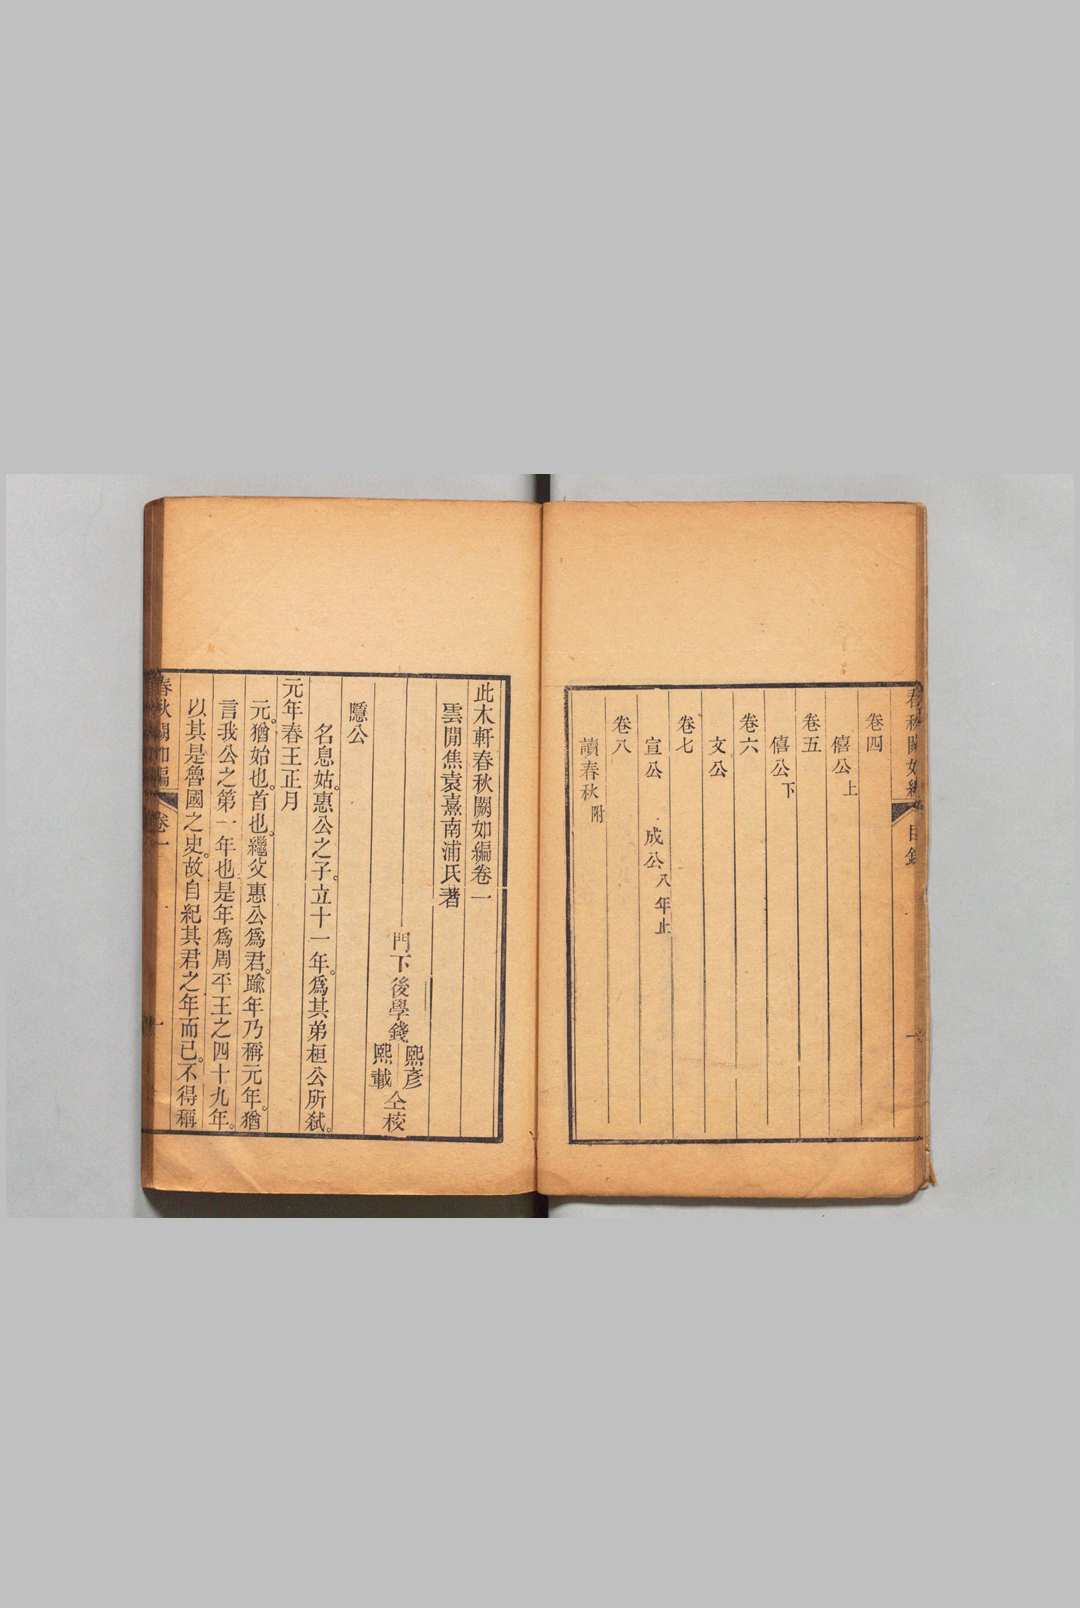 春秋闕如編 目錄
卷四
僖公上
卷五
僖公下
卷六
文公
卷七
宣公 成公八年止
卷八
讀春秋附
此木軒春秋闕如編卷一
雲間焦袁熹南浦氏著
門下後學錢熙彥熙載仝校
隱公
名息姑。惠公之子。立十一年。爲其弟桓公所弑。
元年春王正月
元。猶始也。首也。繼父惠公爲君。踰年乃稱元年。猶
言我公之第一年也是年爲周平王之四十九年。
以其是魯國之史。故自紀其君之年而已。不得稱
春秋闕如編 卷一 一